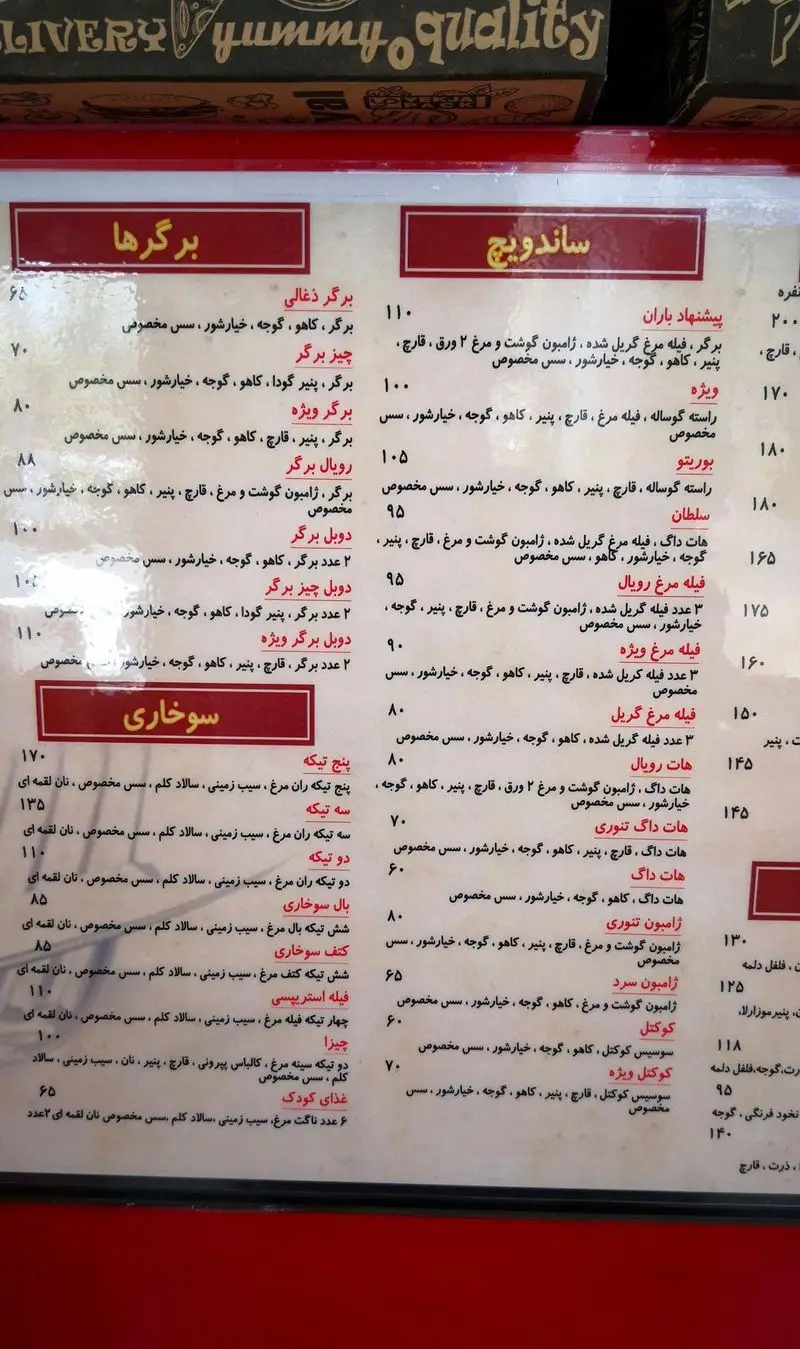 DELIVERY yummy quality
ساندویچ
پیشنهاد باران ۱۱۰
برگر ، فیله مرغ گریل شده ، ژامبون گوشت و مرغ ۲ ورق ، قارچ ،
پنیر ، کاهو ، گوجه ، خیارشور ، سس مخصوص
ویژه ۱۰۰
راسته گوساله ، فیله مرغ ، قارچ ، پنیر ، کاهو ، گوجه ، خیارشور ، سس
مخصوص
بوریتو ۱۰۵
راسته گوساله ، قارچ ، پنیر ، کاهو ، گوجه ، خیارشور ، سس مخصوص
سلطان ۹۵
هات داگ ، فیله مرغ گریل شده ، ژامبون گوشت و مرغ ، قارچ ، پنیر ،
گوجه ، خیارشور ، کاهو ، سس مخصوص
فیله مرغ رویال ۹۵
۳ عدد فیله گریل شده ، ژامبون گوشت و مرغ ، قارچ ، پنیر ، گوجه ،
خیارشور ، سس مخصوص
فیله مرغ ویژه ۹۰
۳ عدد فیله کریل شده ، قارچ ، پنیر ، کاهو ، گوجه ، خیارشور ، سس
مخصوص
فیله مرغ گریل ۸۰
۳ عدد فیله گریل شده ، کاهو ، گوجه ، خیارشور ، سس مخصوص
هات رویال ۸۰
هات داگ ، ژامبون گوشت و مرغ ۲ ورق ، قارچ ، پنیر ، کاهو ، گوجه ،
خیارشور ، سس مخصوص
هات داگ تنوری ۷۰
هات داگ ، قارچ ، پنیر ، کاهو ، گوجه ، خیارشور ، سس مخصوص
هات داگ ۶۰
هات داگ ، کاهو ، گوجه ، خیارشور ، سس مخصوص
ژامبون تنوری ۸۰
ژامبون گوشت و مرغ ، قارچ ، پنیر ، کاهو ، گوجه ، خیارشور ، سس
مخصوص
ژامبون سرد ۶۵
ژامبون گوشت و مرغ ، کاهو ، گوجه ، خیارشور ، سس مخصوص
کوکتل ۶۰
سوسیس کوکتل ، کاهو ، گوجه ، خیارشور ، سس مخصوص
کوکتل ویژه ۷۰
سوسیس کوکتل ، قارچ ، پنیر ، کاهو ، گوجه ، خیارشور ، سس
مخصوص
برگرها
برگر ذغالی ۶۵
برگر ، کاهو ، گوجه ، خیارشور ، سس مخصوص
چیز برگر ۷۰
برگر ، پنیر گودا ، کاهو ، گوجه ، خیارشور ، سس مخصوص
برگر ویژه ۸۰
برگر ، پنیر ، قارچ ، کاهو ، گوجه ، خیارشور ، سس مخصوص
رویال برگر ۸۸
برگر ، ژامبون گوشت و مرغ ، قارچ ، پنیر ، کاهو ، گوجه ، خیارشور ، سس
مخصوص
دوبل برگر ۱۰۰
۲ عدد برگر ، کاهو ، گوجه ، خیارشور ، سس مخصوص
دوبل چیز برگر ۱۰۵
۲ عدد برگر ، پنیر گودا ، کاهو ، گوجه ، خیارشور ، سس مخصوص
دوبل برگر ویژه ۱۱۰
۲ عدد برگر ، قارچ ، پنیر ، کاهو ، گوجه ، خیارشور ، سس مخصوص
سوخاری
پنج تیکه ۱۷۰
پنج تیکه ران مرغ ، سیب زمینی ، سالاد کلم ، سس مخصوص ، نان لقمه ای
سه تیکه ۱۳۵
سه تیکه ران مرغ ، سیب زمینی ، سالاد کلم ، سس مخصوص ، نان لقمه ای
دو تیکه ۱۱۰
دو تیکه ران مرغ ، سیب زمینی ، سالاد کلم ، سس مخصوص ، نان لقمه ای
بال سوخاری ۸۵
شش تیکه بال مرغ ، سیب زمینی ، سالاد کلم ، سس مخصوص ، نان لقمه ای
کتف سوخاری ۸۵
شش تیکه کتف مرغ ، سیب زمینی ، سالاد کلم ، سس مخصوص ، نان لقمه ای
فیله استریپسی ۱۱۰
چهار تیکه فیله مرغ ، سیب زمینی ، سالاد کلم ، سس مخصوص ، نان لقمه ای
چیزا ۱۰۰
دو تیکه سینه مرغ ، کالباس پپرونی ، قارچ ، پنیر ، نان ، سیب زمینی ، سالاد
کلم ، سس مخصوص
غذای کودک ۶۵
۶ عدد ناگت مرغ، سیب زمینی ،سالاد کلم ،سس مخصوص نان لقمه ای ۲عدد
نفره
۲۰۰
، قارچ ،
۱۷۰
۱۸۰
۱۸۰
۱۶۵
۱۷۵
۱۶۰
۱۵۰
، پنیر
۱۴۵
۱۴۵
۱۳۰
، فلفل دلمه
۱۲۵
، پنیرموزارلا،
۱۱۸
،گوجه،فلفل دلمه
۹۵
نخود فرنگی ، گوجه
۱۴۰
، ذرت ، قارچ